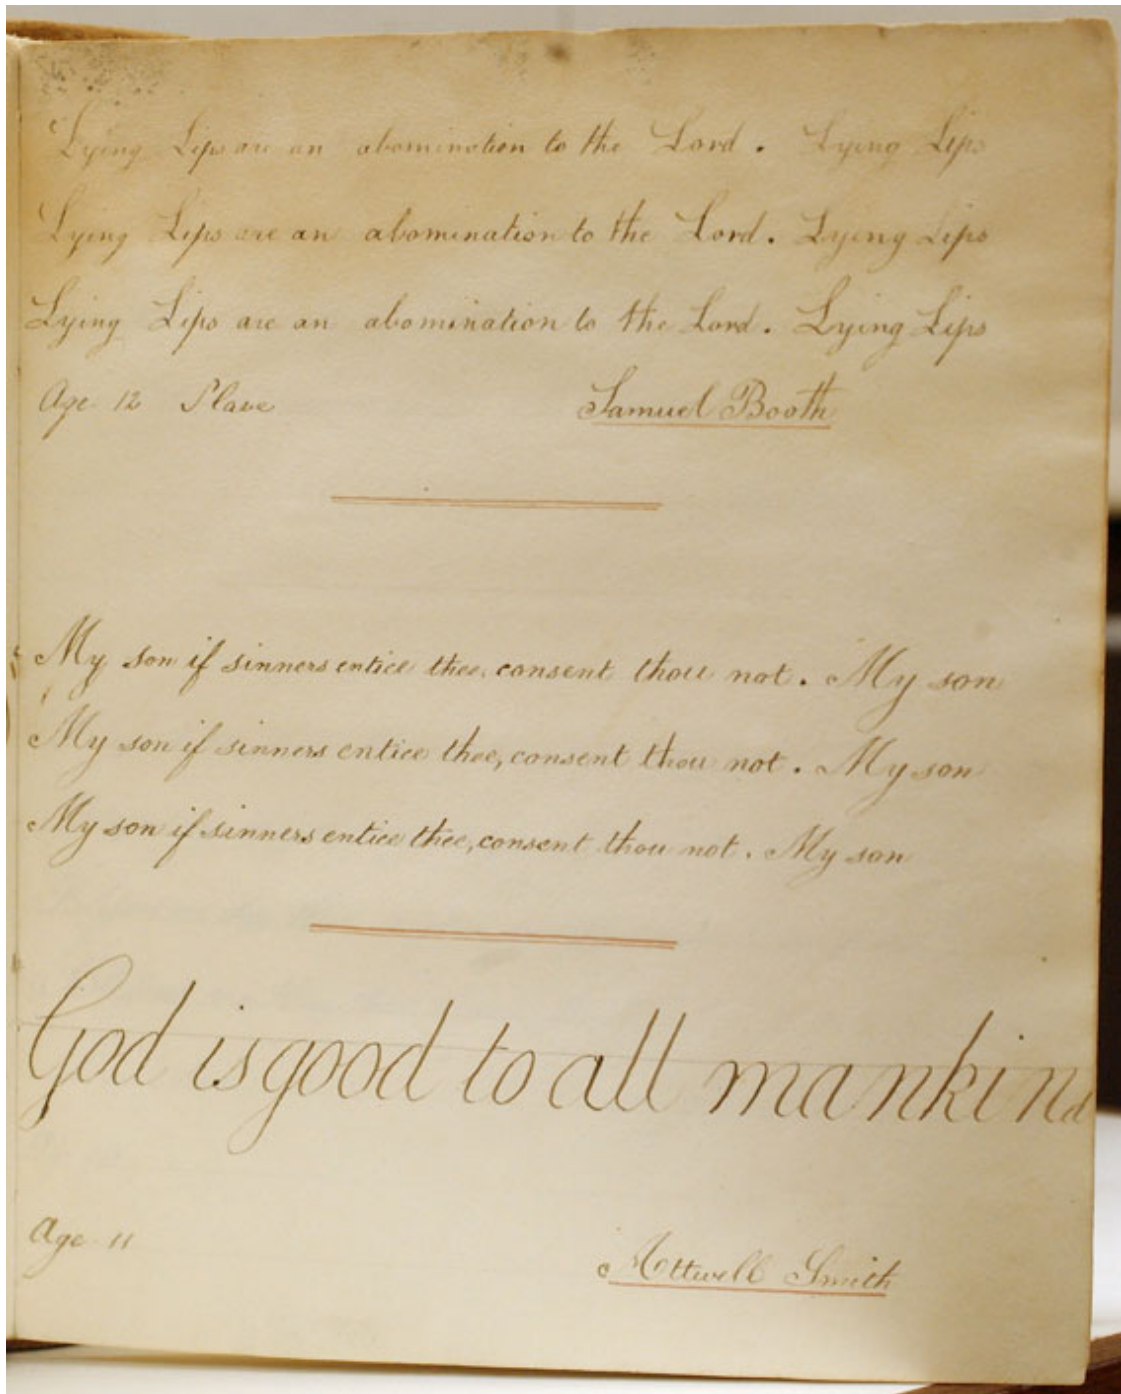 Lying Lips are an abomination to the Lord. Lying Lips
Lying Lips are an abomination to the Lord. Lying Lips
Lying Lips are an abomination to the Lord. Lying Lips
Age 12 Slave Samuel Booth
My son if sinners entice thee, consent thou not. My son
My son if sinners entice thee, consent thou not. My son
My son if sinners entice thee, consent thou not. My son
God is good to all mankind
Age 11 Attwell Smith